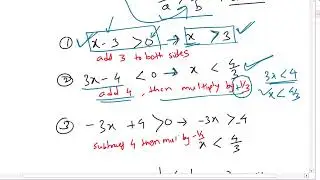 a b
① x - 3 > 0 → x > 3
add 3 to both sides
② 3x - 4 < 0 → x < 4/3
add 4, then multiply by 1/3
3x < 4
x < 4/3
③ -3x + 4 > 0 → -3x > -4
subtract 4 then mul by -1/3
x < 4/3